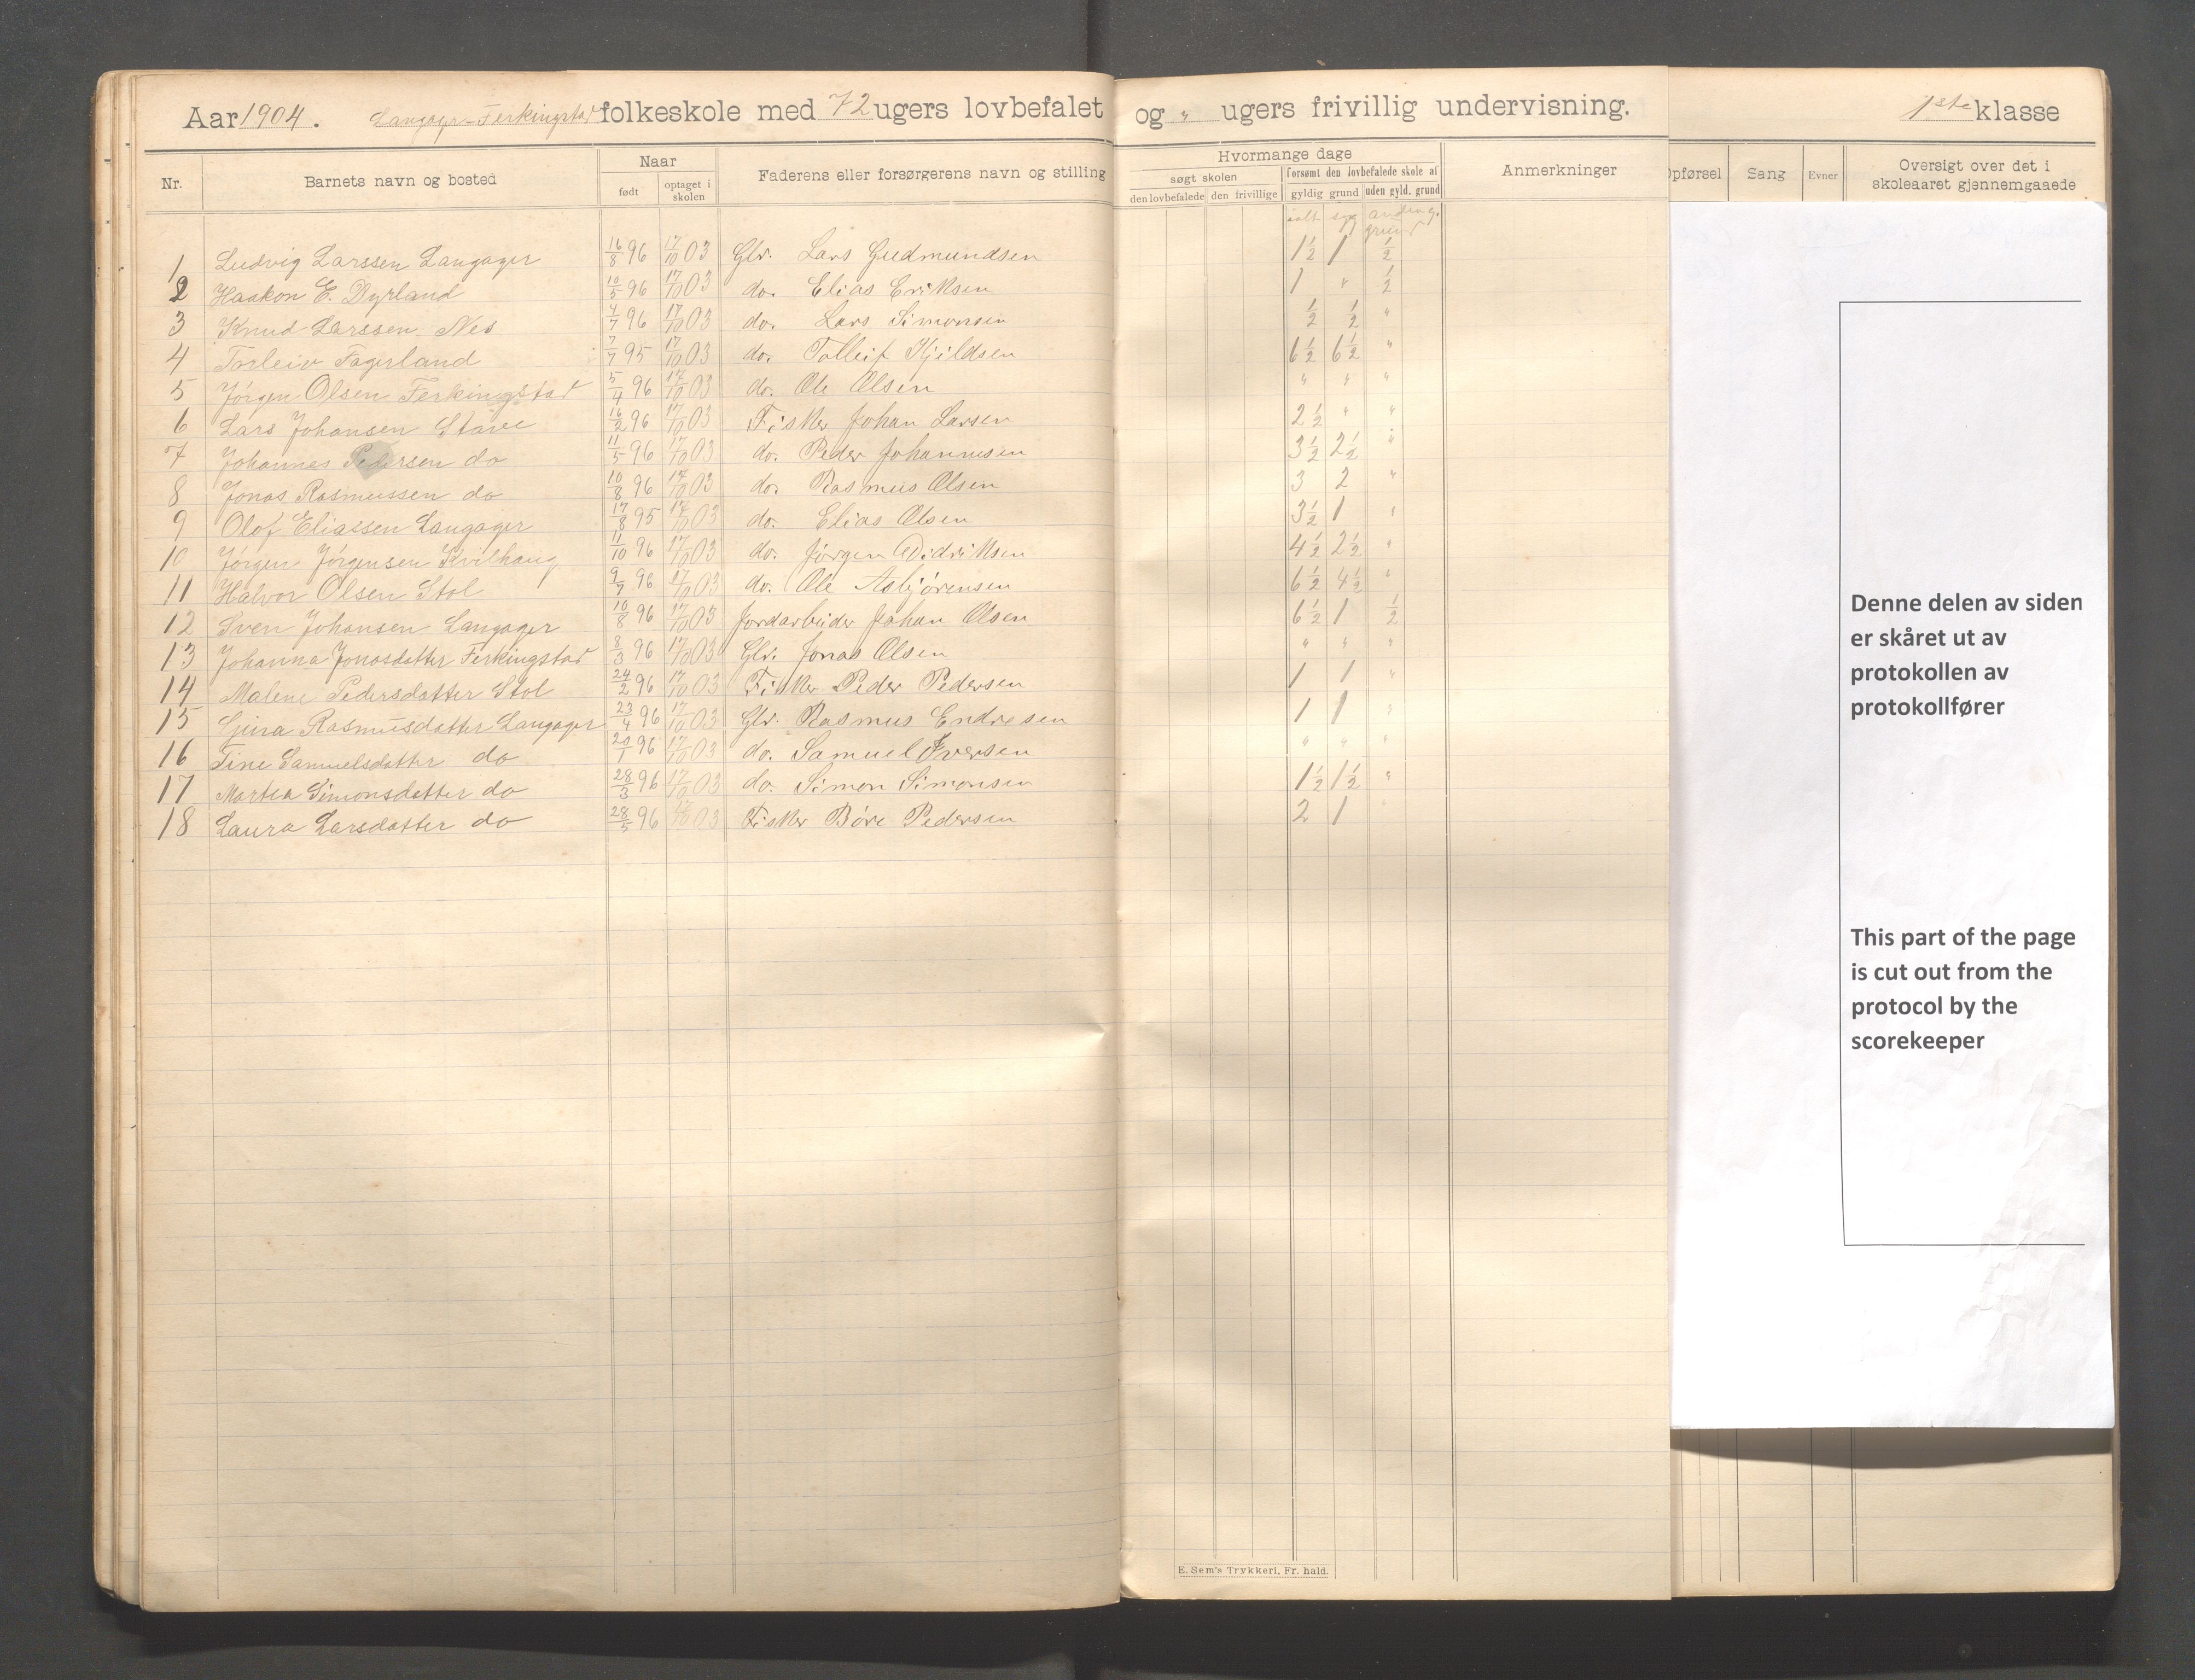 Aar 1904. Langager-Ferkingstad folkeskole med 72 ugers lovbefalet og " ugers frivillig undervisning. 1ste klasse
Nr. Barnets navn og bosted Naar født optaget i skolen Faderens eller forsørgerens navn og stilling
Hvormange dage
søgt skolen forsømt den lovbefalede skole af
den lovbefalede den frivillige gyldig grund uden gyld. grund
Anmerkninger
Opførsel Sang Evner Oversigt over det i skoleaaret gjennemgaaede
ialt syg
1 Ludvig Larssen Langager 16/8 96 17/10 03 Gbr. Lars Gudmundsen 1 1/2 1 1/2
2 Haakon E. Dyrland 10/5 96 17/10 03 do. Elias Eriksen 1 " 1/2
3 Knud Larssen Nes 4/7 96 17/10 03 do. Lars Simonsen 1/2 1/2 "
4 Torleiv Fagerland 7/7 95 17/10 03 do. Tolleif Kjildsen 6 1/2 6 1/2 "
5 Jórgen Olsen Ferkingstad 5/4 96 17/10 03 do. Ole Olsen " " "
6 Lars Johansen Stave 16/2 96 17/10 03 Fisker Johan Larsen 2 1/2 " "
7 Johannes Pedersen do 11/5 96 17/10 03 do. Peder Johannesen 3 1/2 2 1/2 "
8 Jonas Rasmussen do 10/8 96 17/10 03 do. Rasmus Olsen 3 2 "
9 Olof Eliassen Langager 17/8 95 17/10 03 do. Elias Olsen 3 1/2 1 "
10 Jórgen Jórgensen Kvilhaug 11/10 96 17/10 03 do. Jórgen Didriksen 4 1/2 2 1/2 "
11 Halvor Olsen Stol 9/7 96 17/10 03 do. Ole Asbjórensen 6 1/2 4 1/2 "
12 Sven Johansen Langager 10/8 96 17/10 03 Jordarbeider Johan Olsen 6 1/2 1 1/2
13 Johanna Jonasdatter Ferkingstad 8/3 96 17/10 03 Gbr. Jonas Olsen " " "
14 Malene Pedersdatter Stol 24/2 96 17/10 03 Fisker Peder Pedersen 1 1 "
15 Rasmusdatter Langager 23/4 96 17/10 03 Gbr. Rasmus Endresen 1 1 "
16 Tine Samuelsdatter do 20/1 96 17/10 03 do. Samuel Iversen " " "
17 Martea Simonsdatter do 28/3 96 17/10 03 do. Simon Simonsen 1 1/2 1 1/2 "
18 Laura Larsdatter do 28/5 96 17/10 03 Fisker Bóre Pedersen 2 1 "
E. Sem's Trykkeri, Fr. hald.
Denne delen av siden
er skåret ut av
protokollen av
protokollfører
This part of the page
is cut out from the
protocol by the
scorekeeper